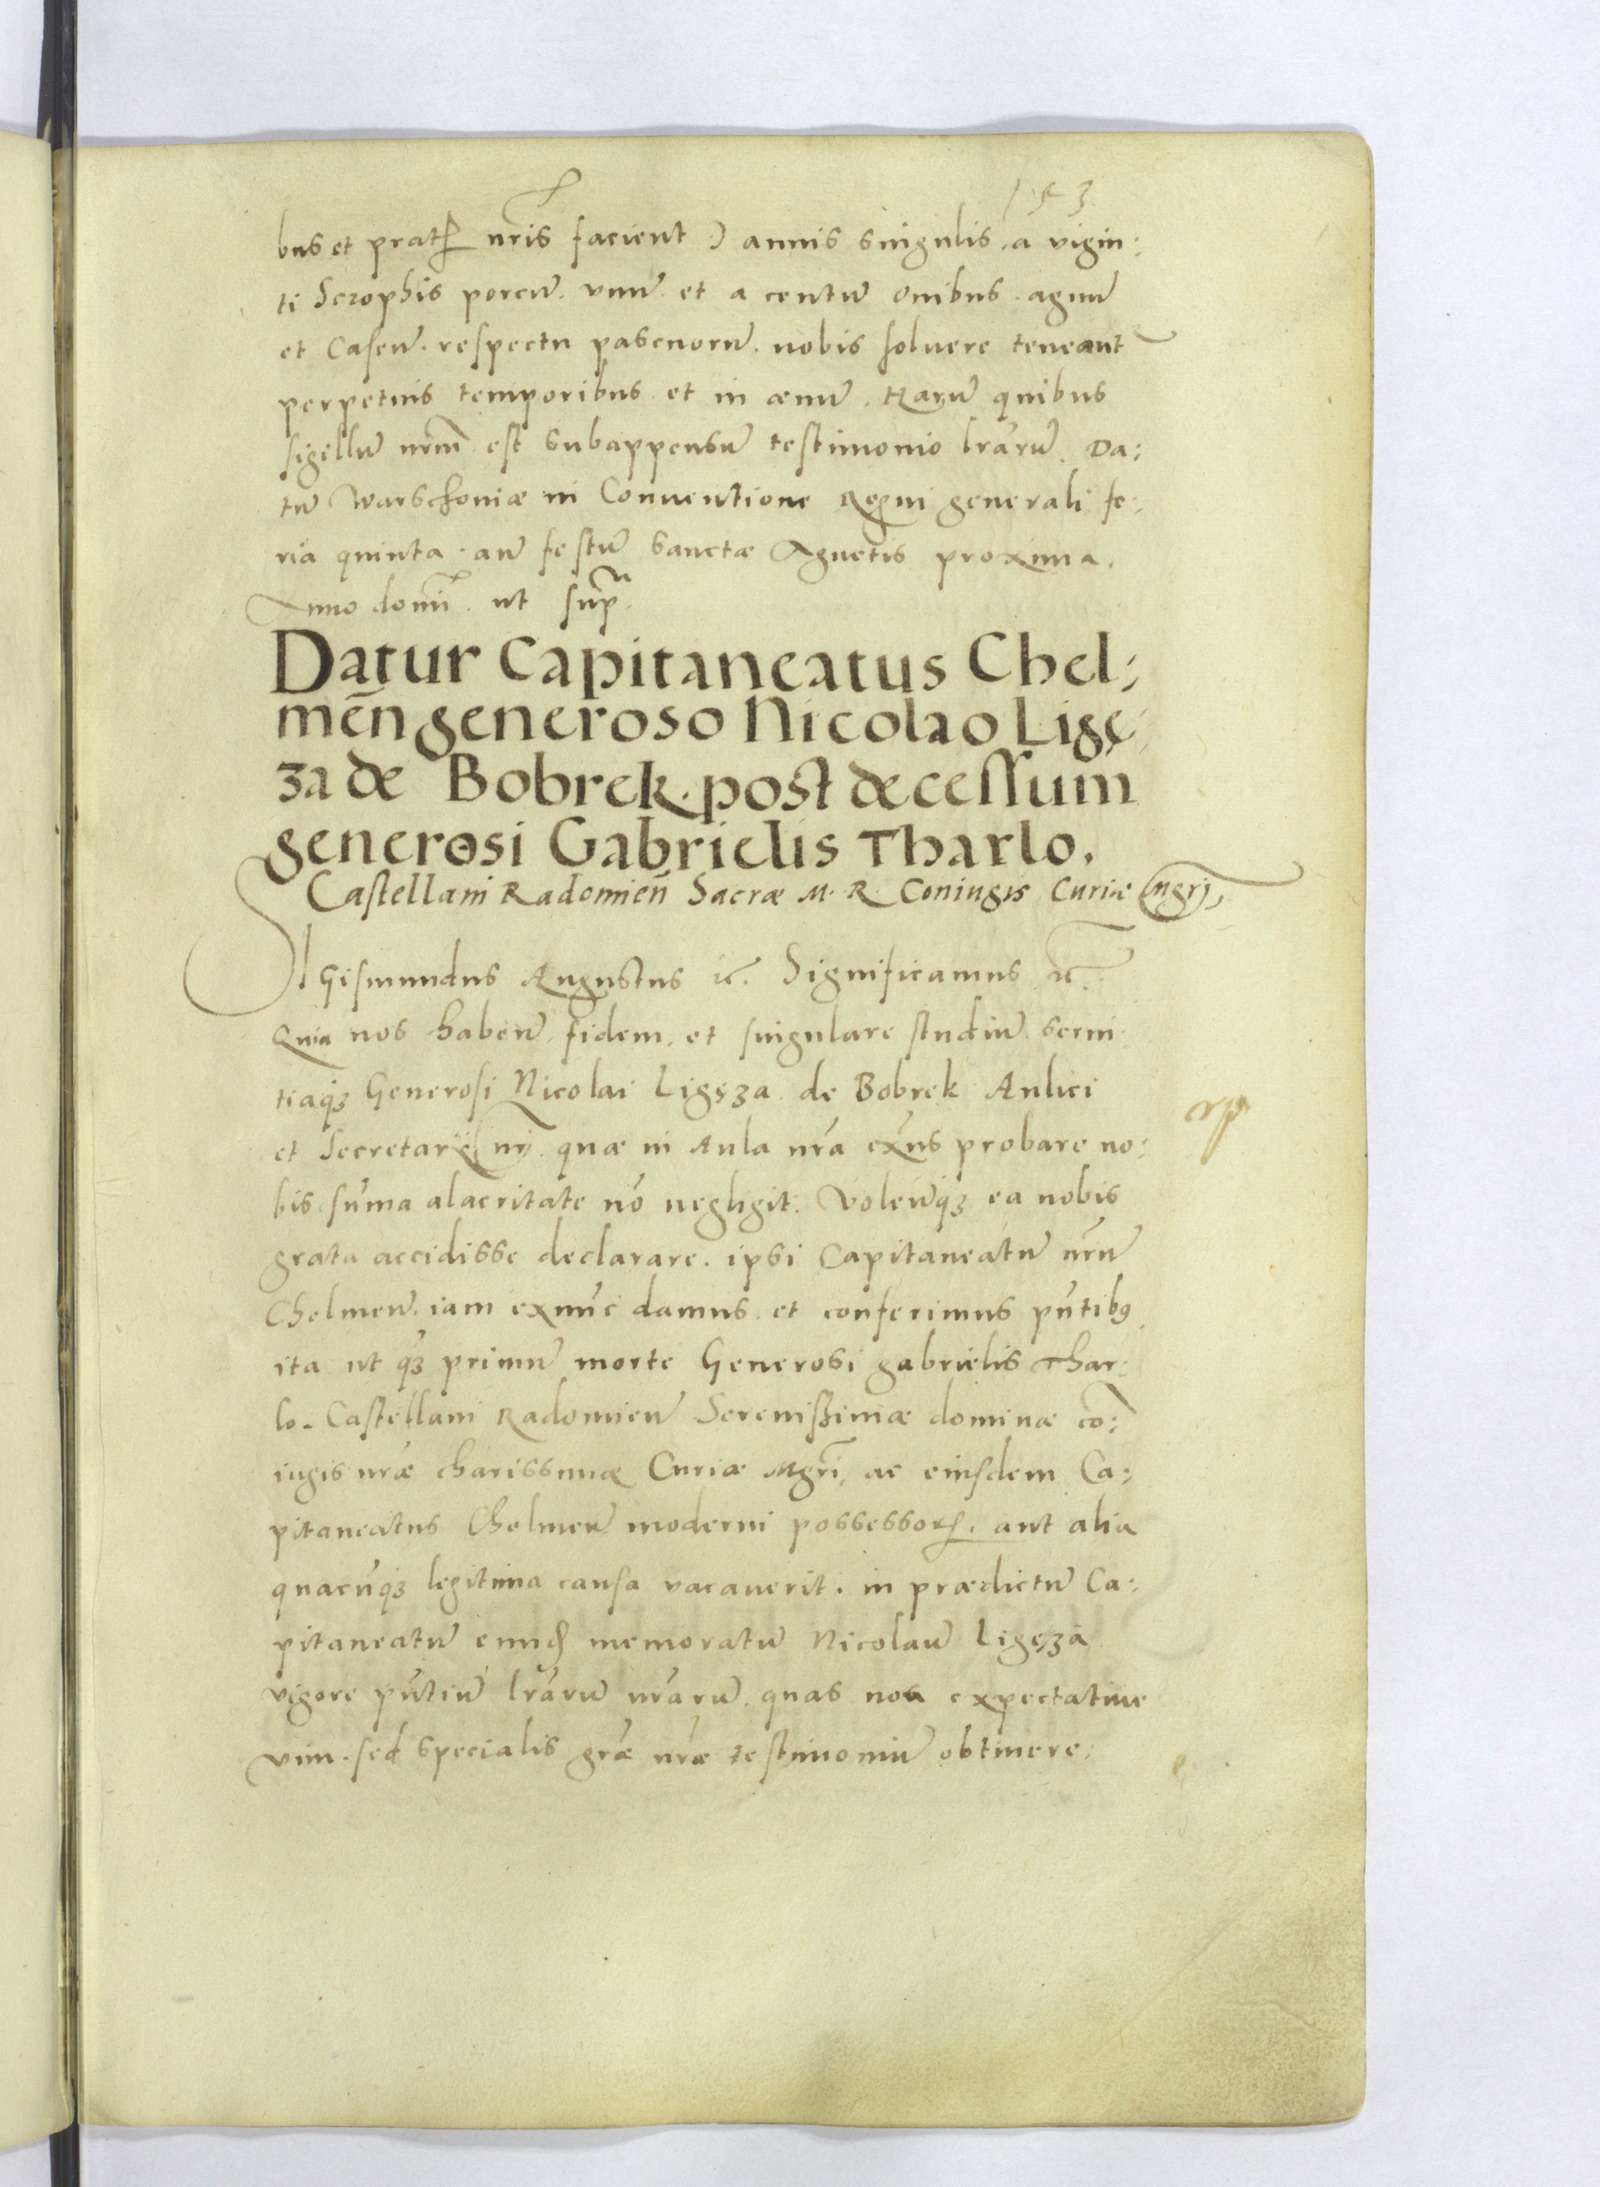 153
bus et pratꝭ nrīs facient) annis singulis, a vigin:
ti Scrophis porcū. vnū. et a centū ouibus. agnū
et Caseū. respectu pascuorū. nobis soluere teneant̃
perpetuis temporibus. et in æuū. Harū quibus
sigillū nrm̄ est subappensū testimonio lrārū. Da:
tū Warschouiæ in Conuentione Regni generali fe:
ria quinta. an̄ festū sanctæ Agnetis proxima.
Anno domī. ut supᵃ.
Datur Capitaneatus Chel:
mēn generoso Nicolao Ligę:
za de Bobrek. post decessum
generosi Gabrielis Tharlo,
Castellani Radomień Sacræ M. R. Coniugis Curiæ mgrj,
SIGismundus Augustus ꝛc̄. Significamus ꝛc̄.
Quia nos habeñ. fidem. et singulare studiū. serui
tiaqȝ Generosi Nicolai Ligęza. de Bobrek Aulici
et Secretarij nrj. quæ in Aula nrā exñs probare no:
bis. sūma alacritate nō negligit. Voleñqȝ ea nobis
grata accidisse declarare. ipsi Capitaneatū nrū
Chelmeñ. iam exnūc damus. et conferimus pñtibꝰ
ita ut qȝ primū morte Generosi gabrielis Thar:
lo. Castellani Radomieñ Serenißimæ dominæ cō:
iugis nrǣ charissimæ Curiæ Mgrī, ac eiusdem Ca:
pitaneatus Chelmeñ moderni possessorꝭ. aut alia
quacūqȝ legitima causa vacauerit. in prædictū Ca:
pitaneatū eundꝭ memoratū Nicolaū Ligęza
vigore pñtiū lrārū nrārū. quas non expectatiuæ
vim. sed specialis grǣ nrǣ testimoniū obtinere: